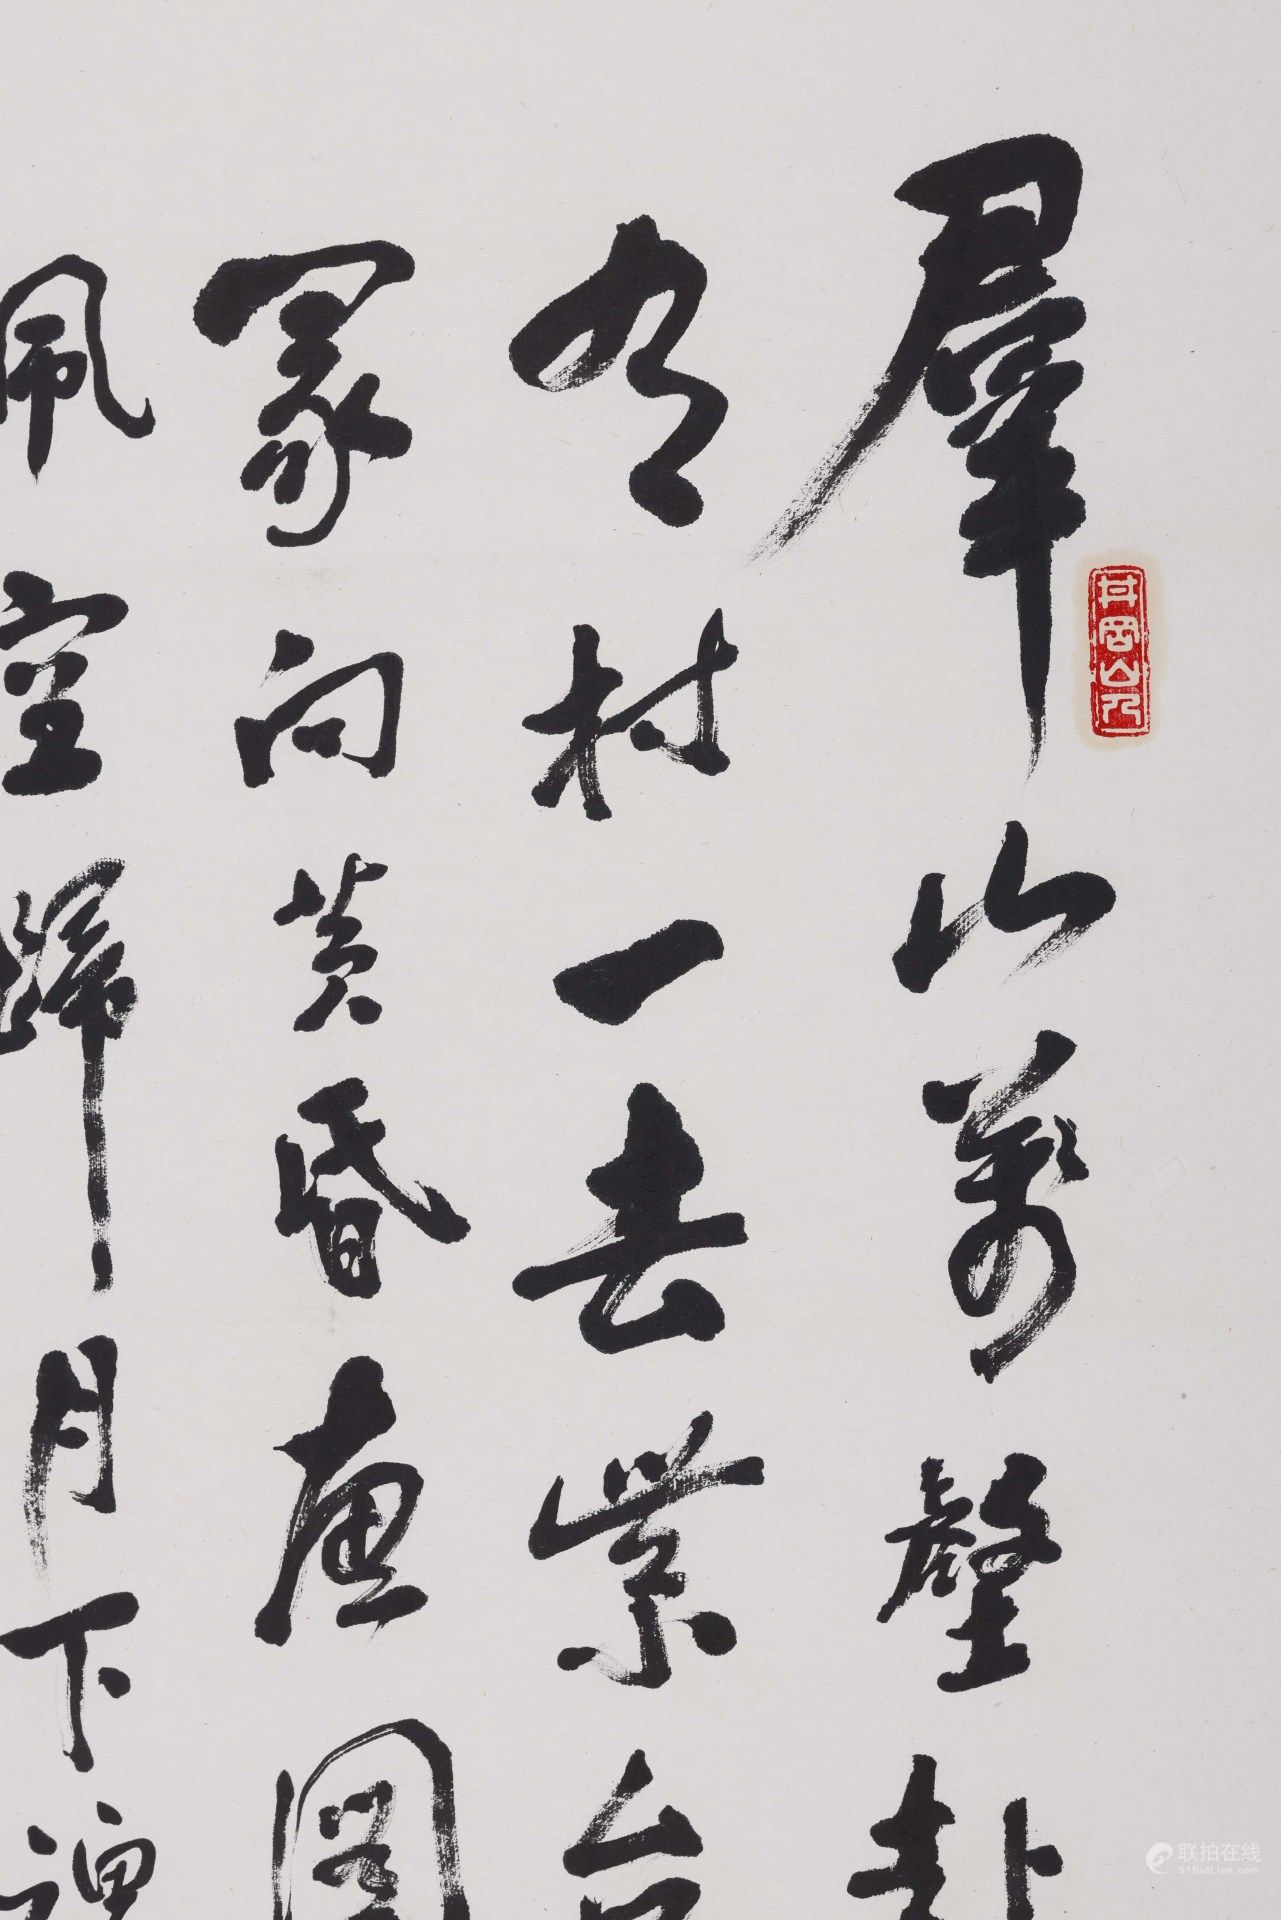 羣山萬壑赴
有村一去紫台
冢向黄昏畫圖
佩空歸月下魂
联拍在线
51BidLive.com